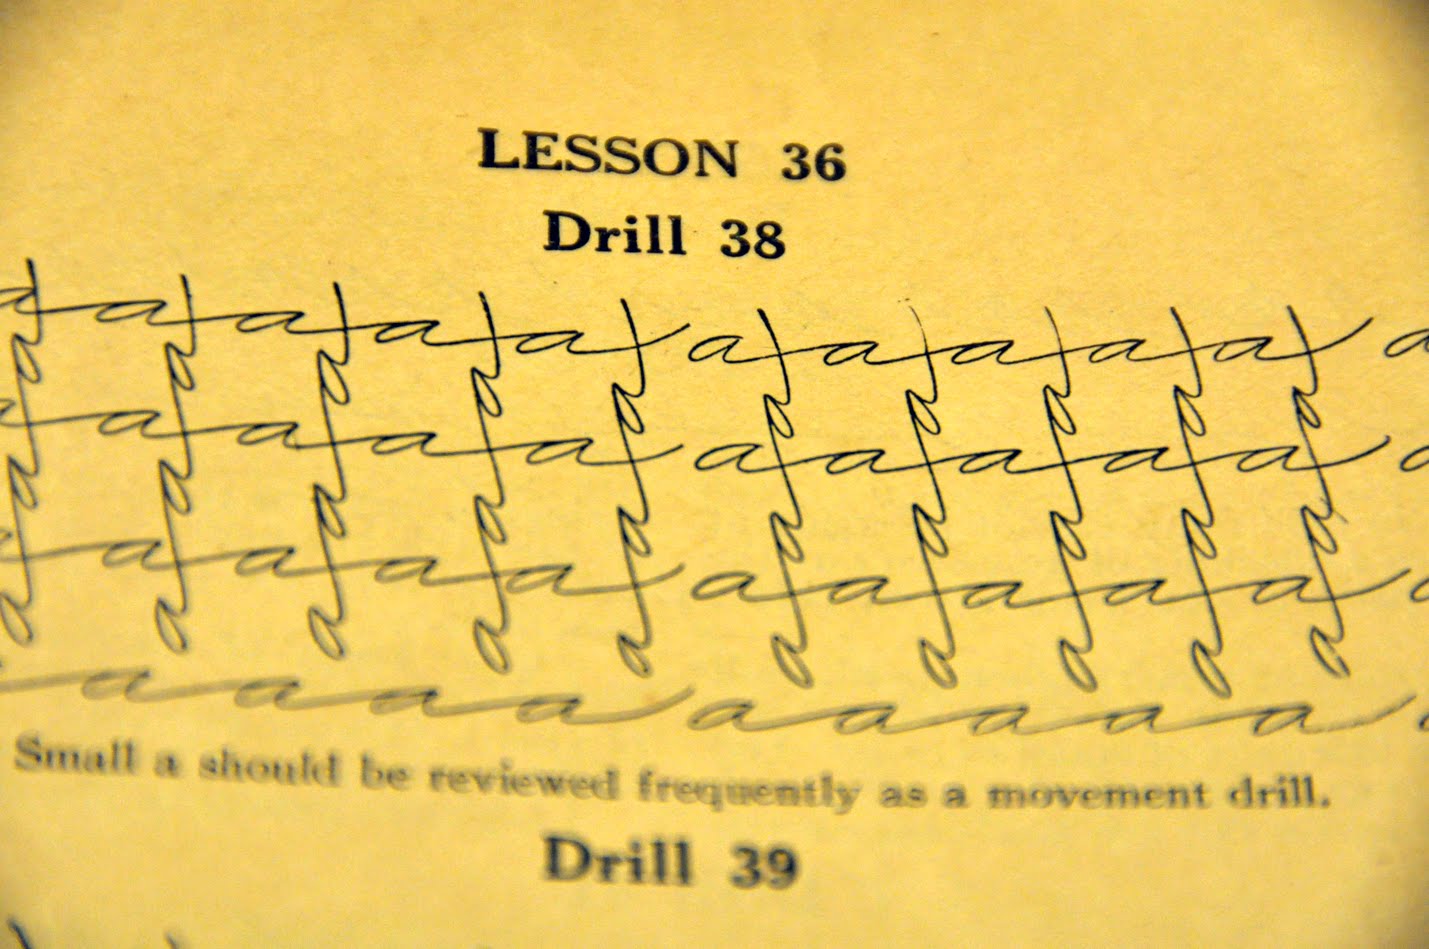 LESSON 36
Drill 38
a a a a a a a a a a a
a a a a a a a a a a a
a a a a a a a a a a a
a a a a a a a a a a
Small a should be reviewed frequently as a movement drill.
Drill 39